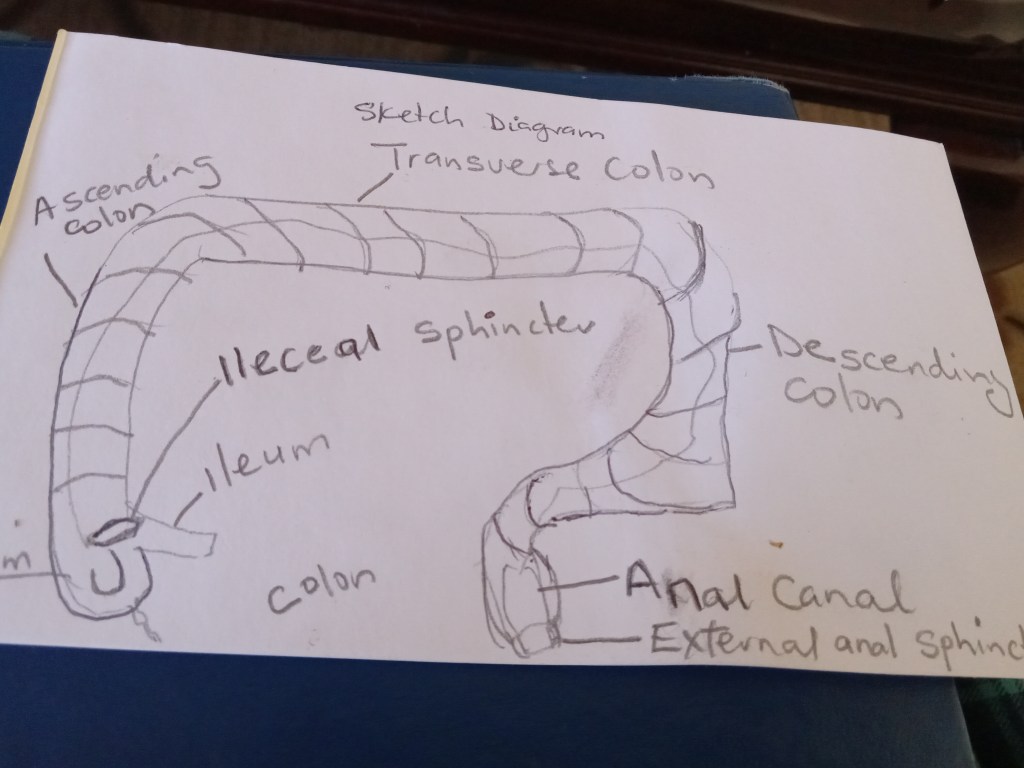 Sketch Diagram
Transverse Colon
Ascending
colon
Ileceal Sphincter
Descending
Colon
Ileum
m
Colon
Anal Canal
External anal Sphinct